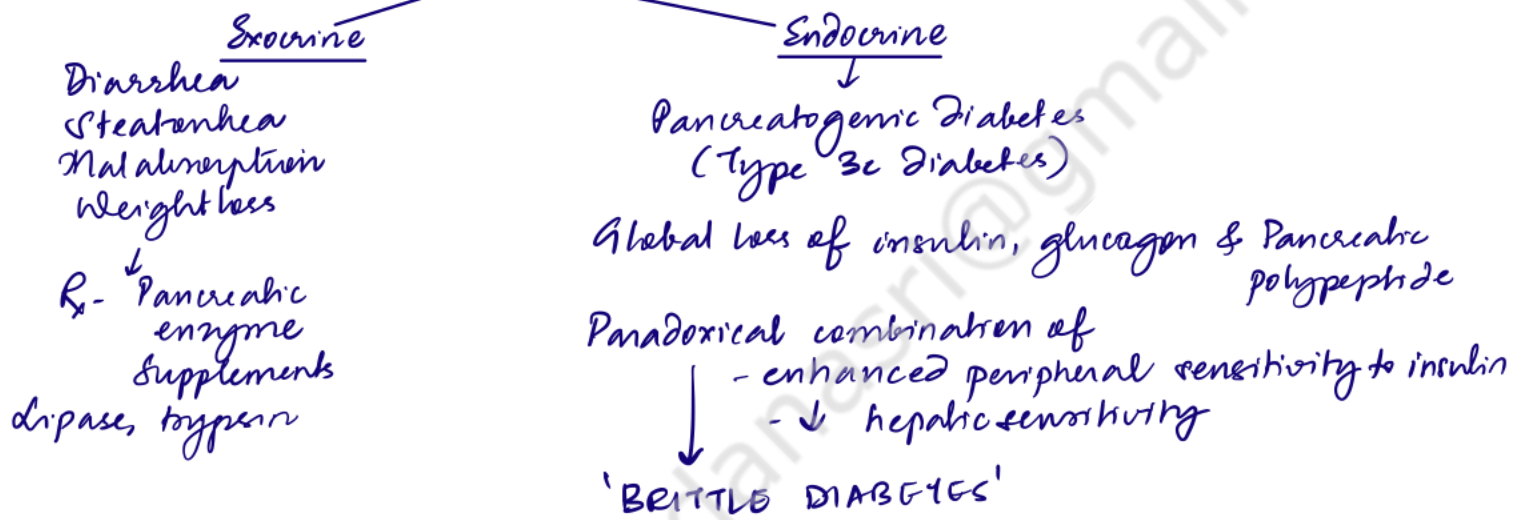 Exocrine
Diarrhea
Steatorrhea
Malabsorption
Weight loss
Rx - Pancreatic
enzyme
Supplements
Lipase, trypsin
Endocrine
Pancreatogenic Diabetes
(Type 3c Diabetes)
Global loss of insulin, glucagon & Pancreatic
polypeptide
Paradoxical combination of
- enhanced peripheral sensitivity to insulin
- ↓ hepatic sensitivity
'BRITTLE DIABETES'
lanasri@gmail